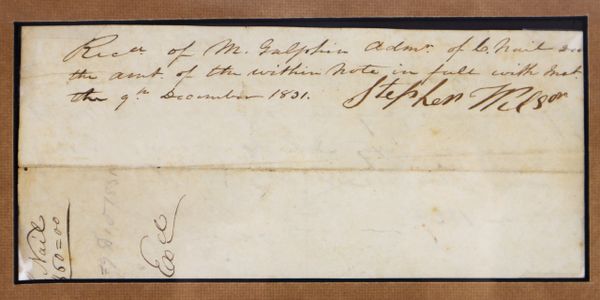 Recd. of M. Galphin Admr. of C. Nail
the amt. of the within Note in full with Inst.
the 9th December 1831. Stephen Wilson
Nail
$60=00